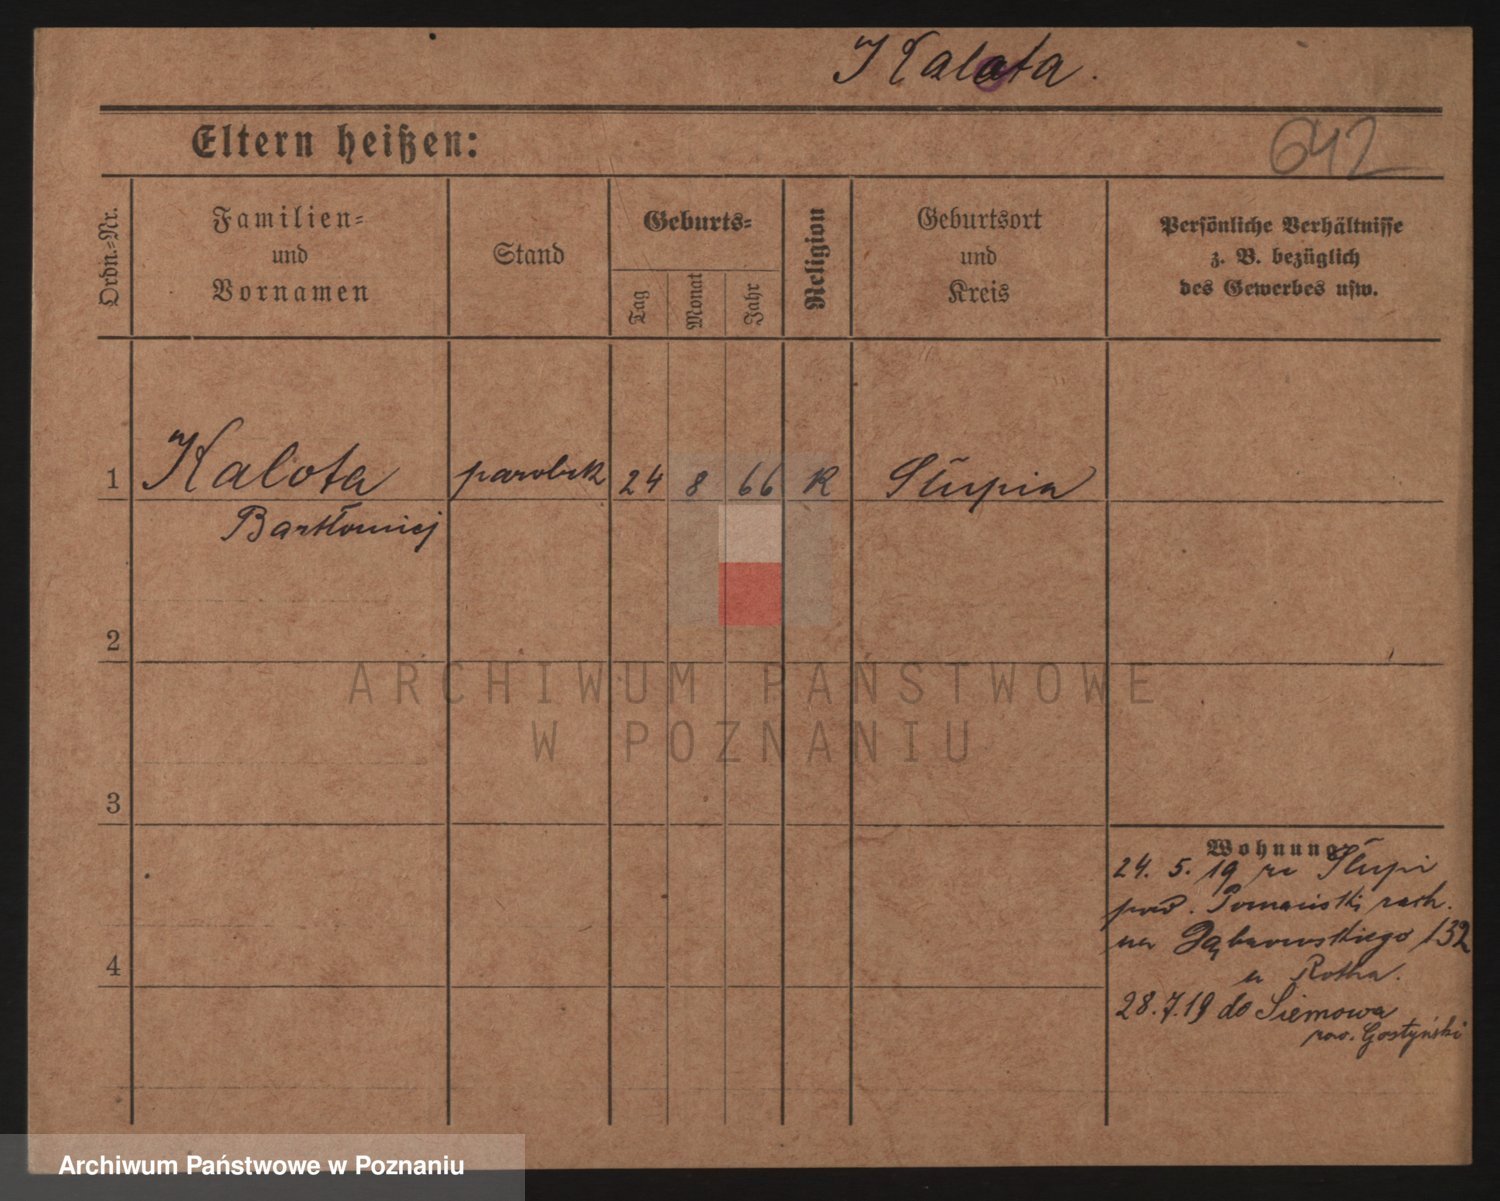 Kalota.
Eltern heißen:
642
Ordn.=Nr.
Familien=
und
Vornamen
Stand
Geburts=
Tag
Monat
Jahr
Religion
Geburtsort
und
Kreis
Persönliche Verhältnisse
z. B. bezüglich
des Gewerbes usw.
1
Kalota
parobek
24
8
66
R
Słupia
Bartłomiej
2
3
4
Wohnung
24. 5. 19 ze Słupi
pow. Poznański rach.
na Dąbrowskiego 132
u Rotha.
28.7.19 do Siemowa
pow. Gostyński
ARCHIWUM PAŃSTWOWE
W POZNANIU
Archiwum Państwowe w Poznaniu